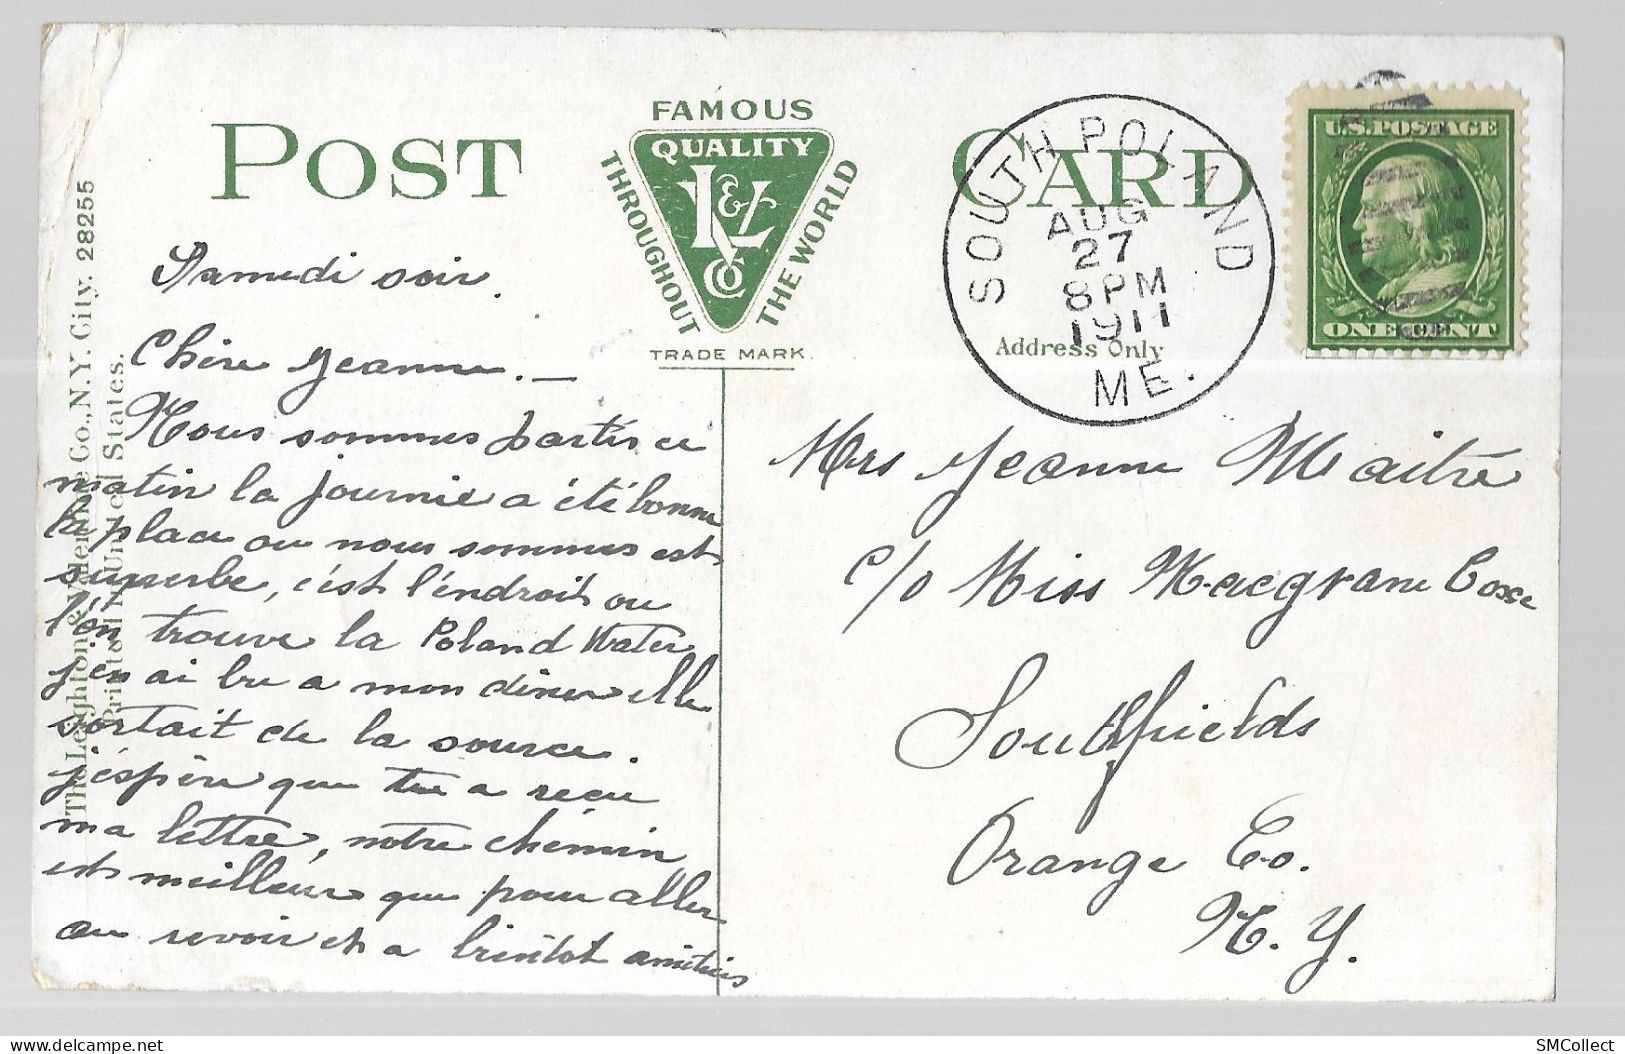 POST CARD
FAMOUS
QUALITY
L & V Co
THROUGHOUT THE WORLD
TRADE MARK.
Address Only
SOUTH POLAND
AUG
27
8 PM
1911
ME.
U.S. POSTAGE
ONE CENT
The Leighton & Valentine Co., N.Y. City. 28255
Printed in United States.
Samedi soir.
Chère Jeanne. —
Nous sommes partis ce
matin la journée a été bonne
la place ou nous sommes est
superbe, c'est l'endroit ou
l'on trouve la Poland Water
j'en ai bu a mon diner elle
sortait de la source.
j'espère que tu a reçu
ma lettre, notre chemin
est meilleur que pour aller
au revoir et a bientot amitiés
Mrs Jeanne Maitre
c/o Miss Macgrane Coxe
Southfields
Orange Co.
N. Y.
SMCollect